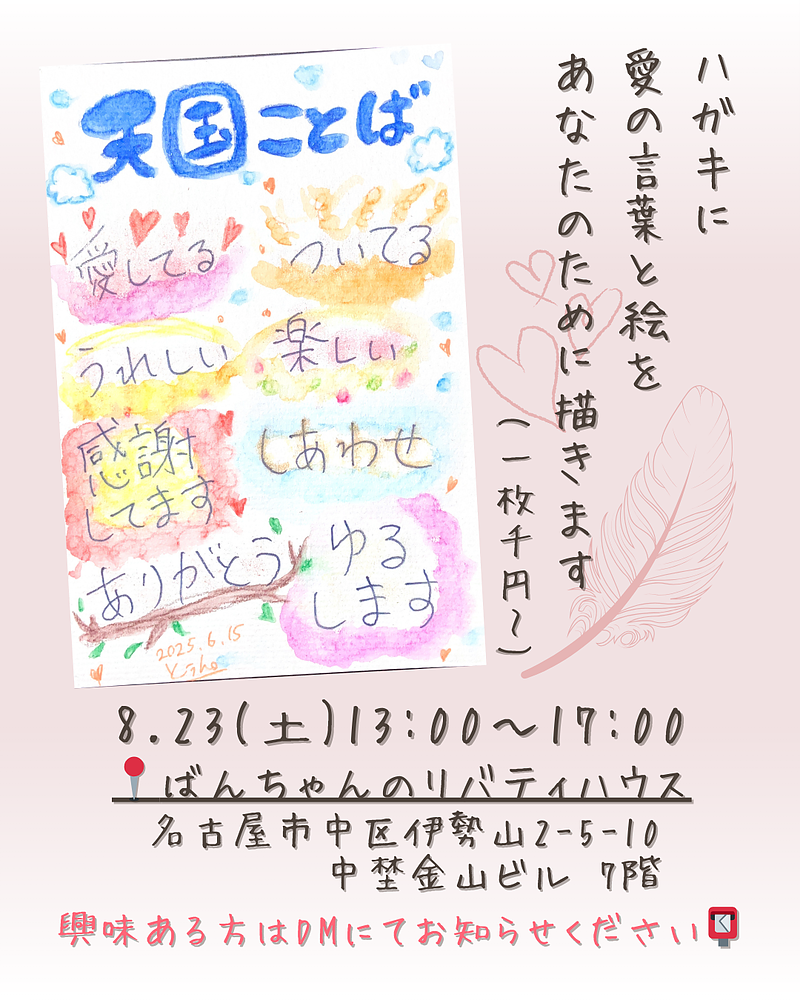 ハガキに
愛の言葉と絵を
あなたのために描きます
(一枚千円〜)
天国ことば
愛してる
ついてる
うれしい
楽しい
感謝
してます
しあわせ
ありがとう
ゆる
します
2025.6.15
8.23(土)13:00〜17:00
ばんちゃんのリバティハウス
名古屋市中区伊勢山2-5-10
中埜金山ビル 7階
興味ある方はDMにてお知らせください